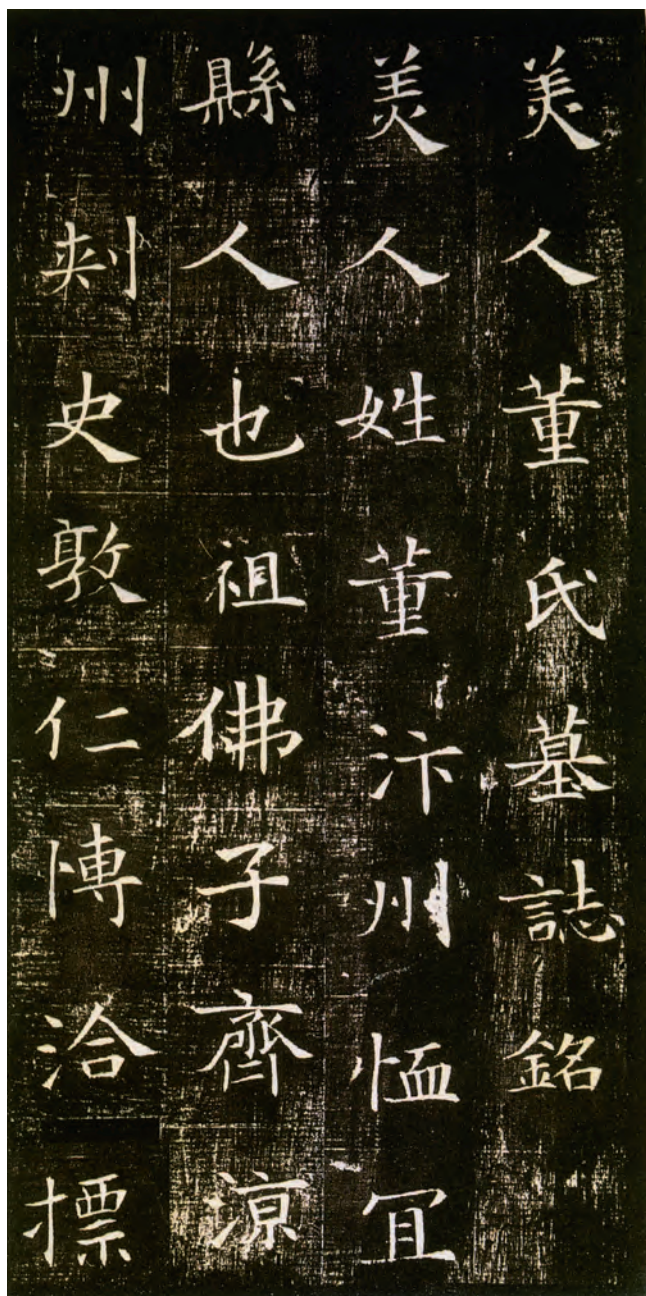 美人董氏墓誌銘
美人姓董汴州恤冝
縣人也祖佛子齊涼
州刺史敦仁博洽標